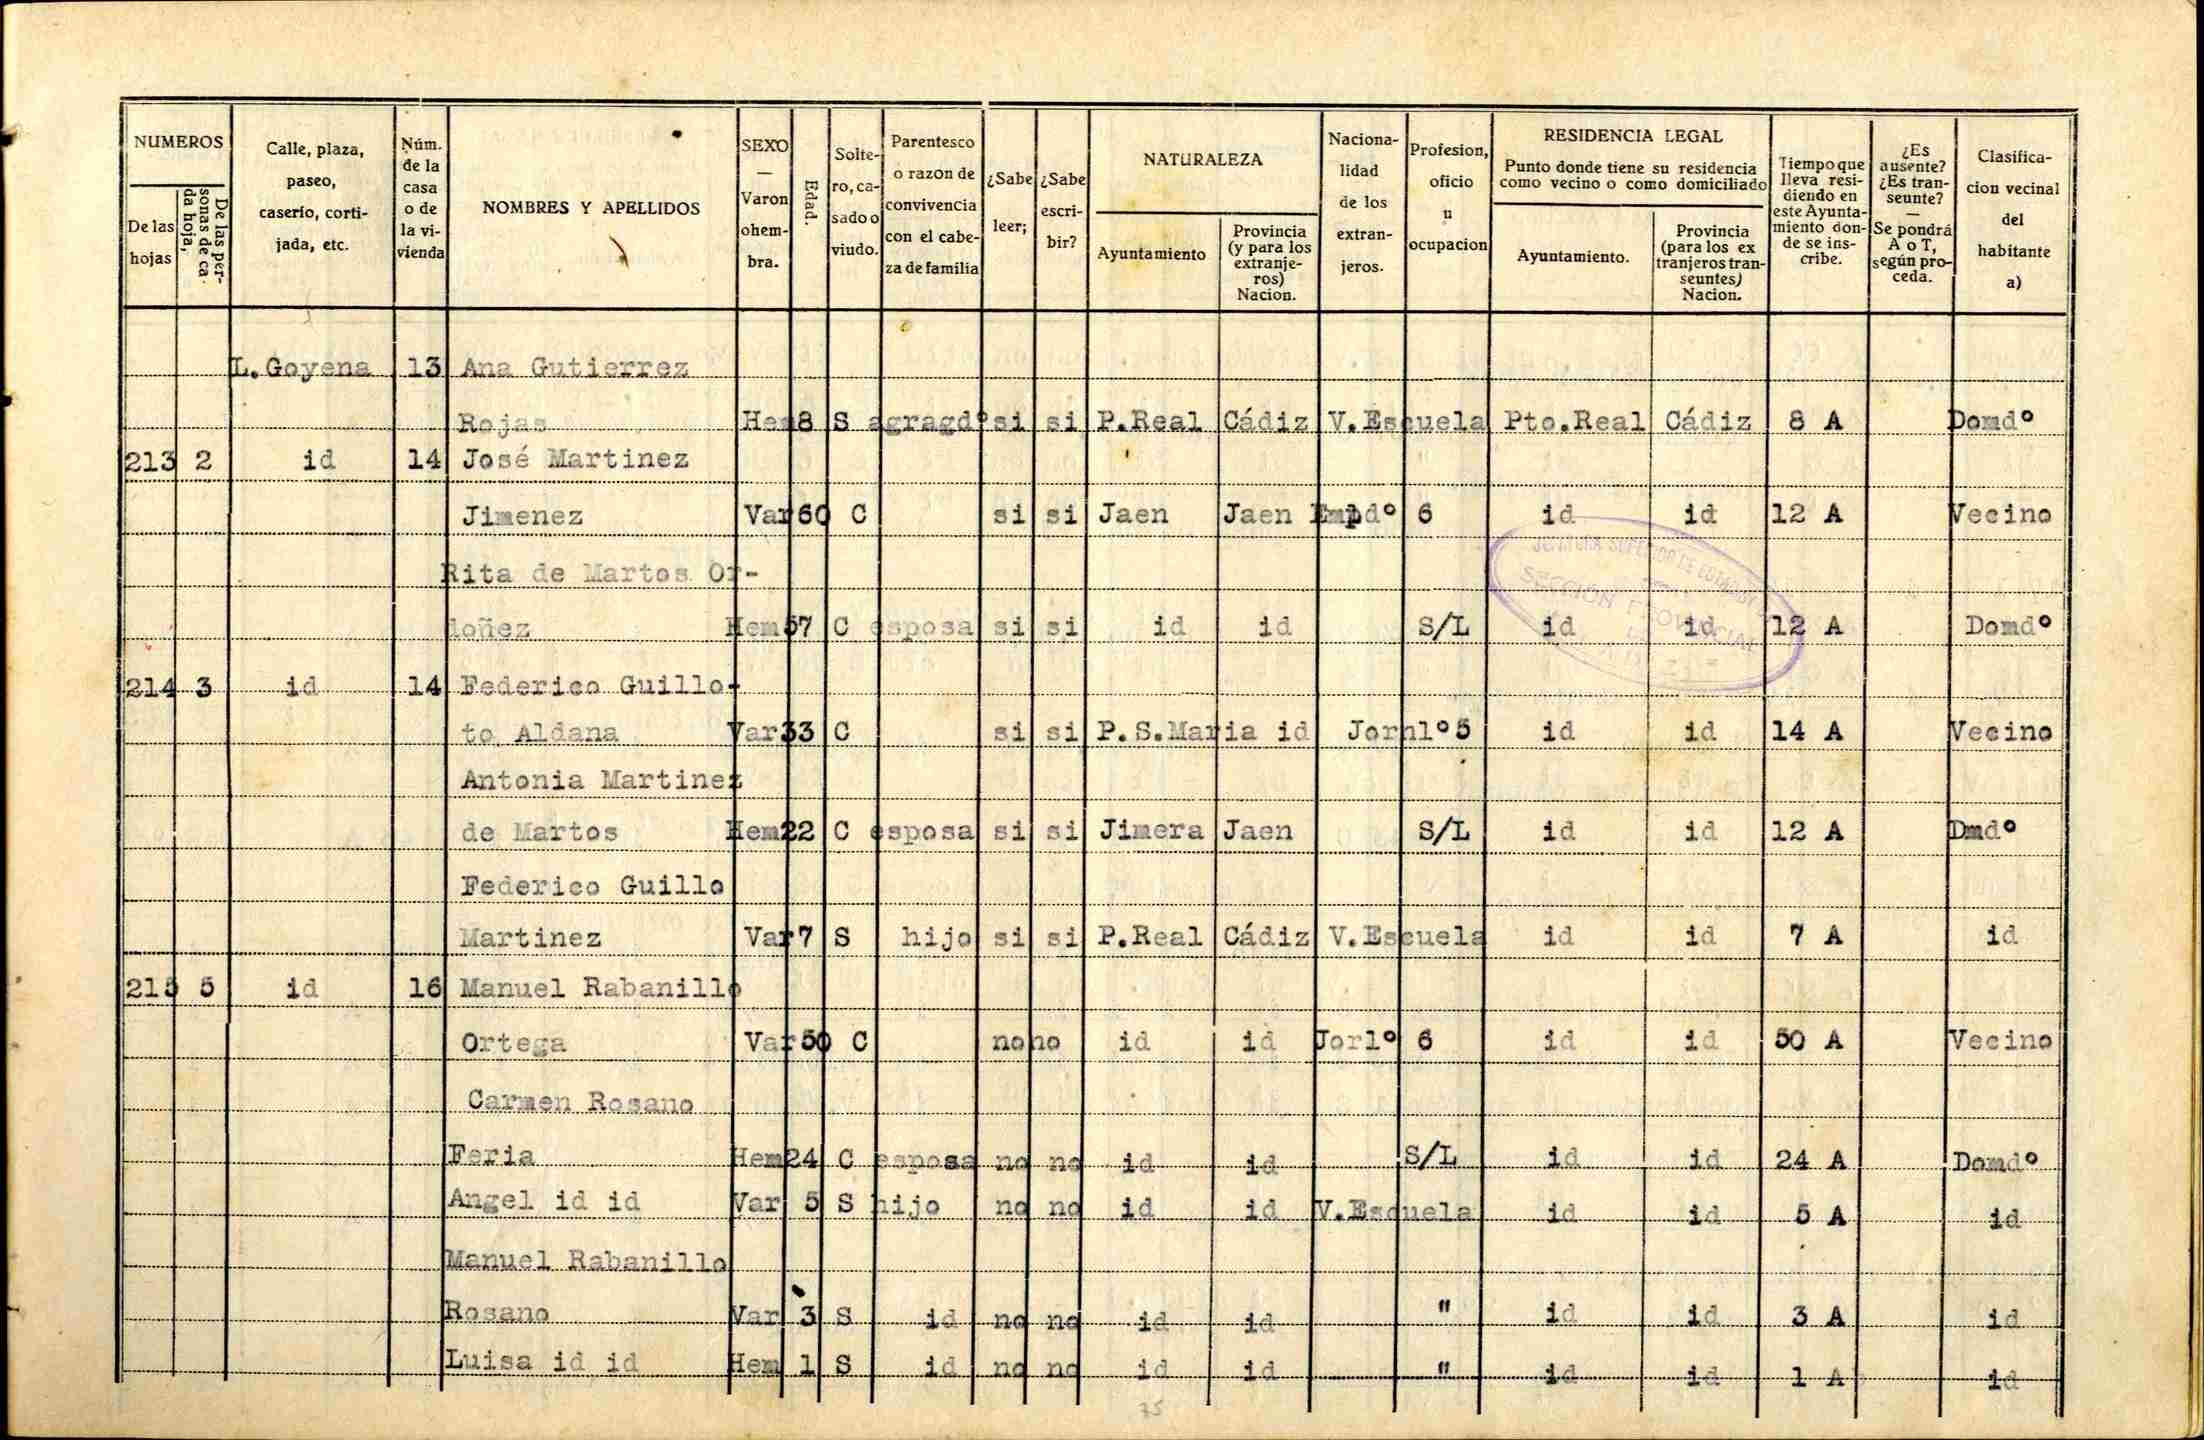 NUMEROS
De las hojas
De las personas de cada hoja,
Calle, plaza, paseo, caserío, cortijada, etc.
Núm. de la casa o de la vivienda
NOMBRES Y APELLIDOS
SEXO — Varon o hembra.
Edad.
Soltero, casado o viudo.
Parentesco o razon de convivencia con el cabeza de familia
¿Sabe leer;
¿Sabe escribir?
NATURALEZA
Ayuntamiento
Provincia (y para los extranjeros) Nacion.
Nacionalidad de los extranjeros.
Profesion, oficio u ocupacion
RESIDENCIA LEGAL
Punto donde tiene su residencia como vecino o como domiciliado
Ayuntamiento.
Provincia (para los extranjeros transeuntes) Nacion.
Tiempo que lleva residiendo en este Ayuntamiento donde se inscribe.
¿Es ausente? ¿Es transeunte? — Se pondrá A o T, según proceda.
Clasificacion vecinal del habitante a)
L.Goyena 13 Ana Gutierrez
Rojas Hem 8 S agragdº si si P.Real Cádiz V.Escuela Pto.Real Cádiz 8 A Domdº
213 2 id 14 José Martinez
Jimenez Var 60 C si si Jaen Jaen Empdº 6 id id 12 A Vecino
Rita de Martos Or-
doñez Hem 57 C esposa si si id id S/L id id 12 A Domdº
214 3 id 14 Federico Guillo-
to Aldana Var 33 C si si P.S.Maria id Jornlº 5 id id 14 A Vecino
Antonia Martinez
de Martos Hem 22 C esposa si si Jimera Jaen S/L id id 12 A Dmdº
Federico Guillo
Martinez Var 7 S hijo si si P.Real Cádiz V.Escuela id id 7 A id
215 5 id 16 Manuel Rabanillo
Ortega Var 50 C no no id id Jorlº 6 id id 50 A Vecino
Carmen Rosano
Feria Hem 24 C esposa no no id id S/L id id 24 A Domdº
Angel id id Var 5 S hijo no no id id V.Escuela id id 5 A id
Manuel Rabanillo
Rosano Var 3 S id no no id id " id id 3 A id
Luisa id id Hem 1 S id no no id id " id id 1 A id
SECCIÓN PROVINCIAL
75